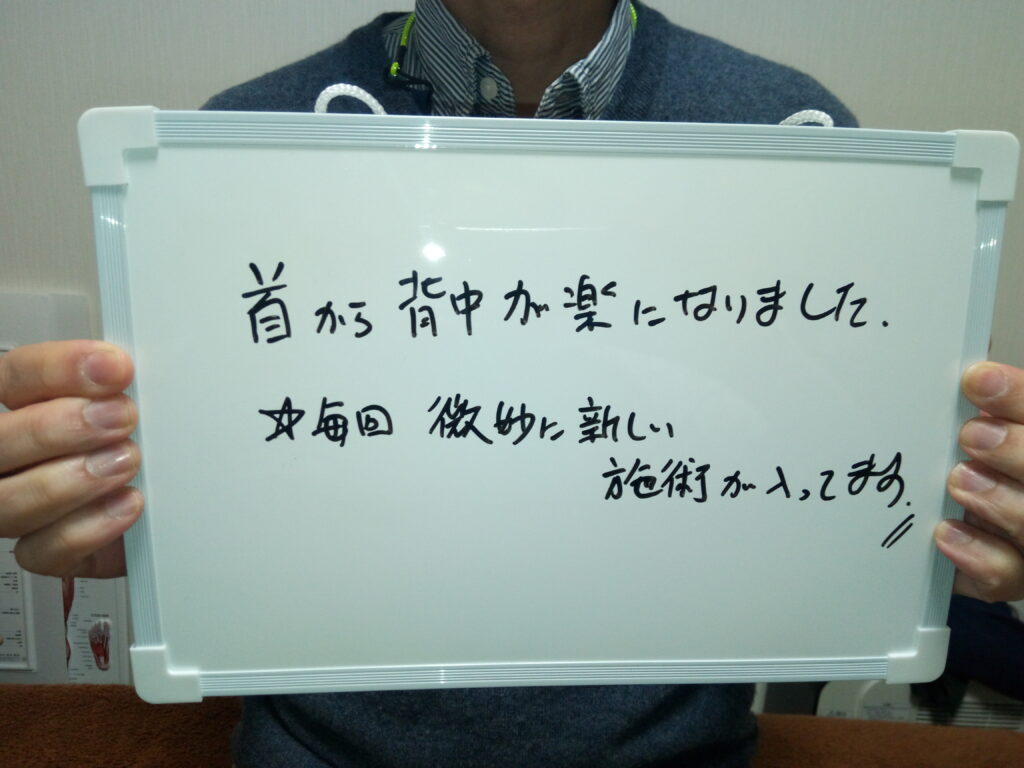 首から背中が楽になりました.
☆毎回 微妙に新しい
施術が入ってます.